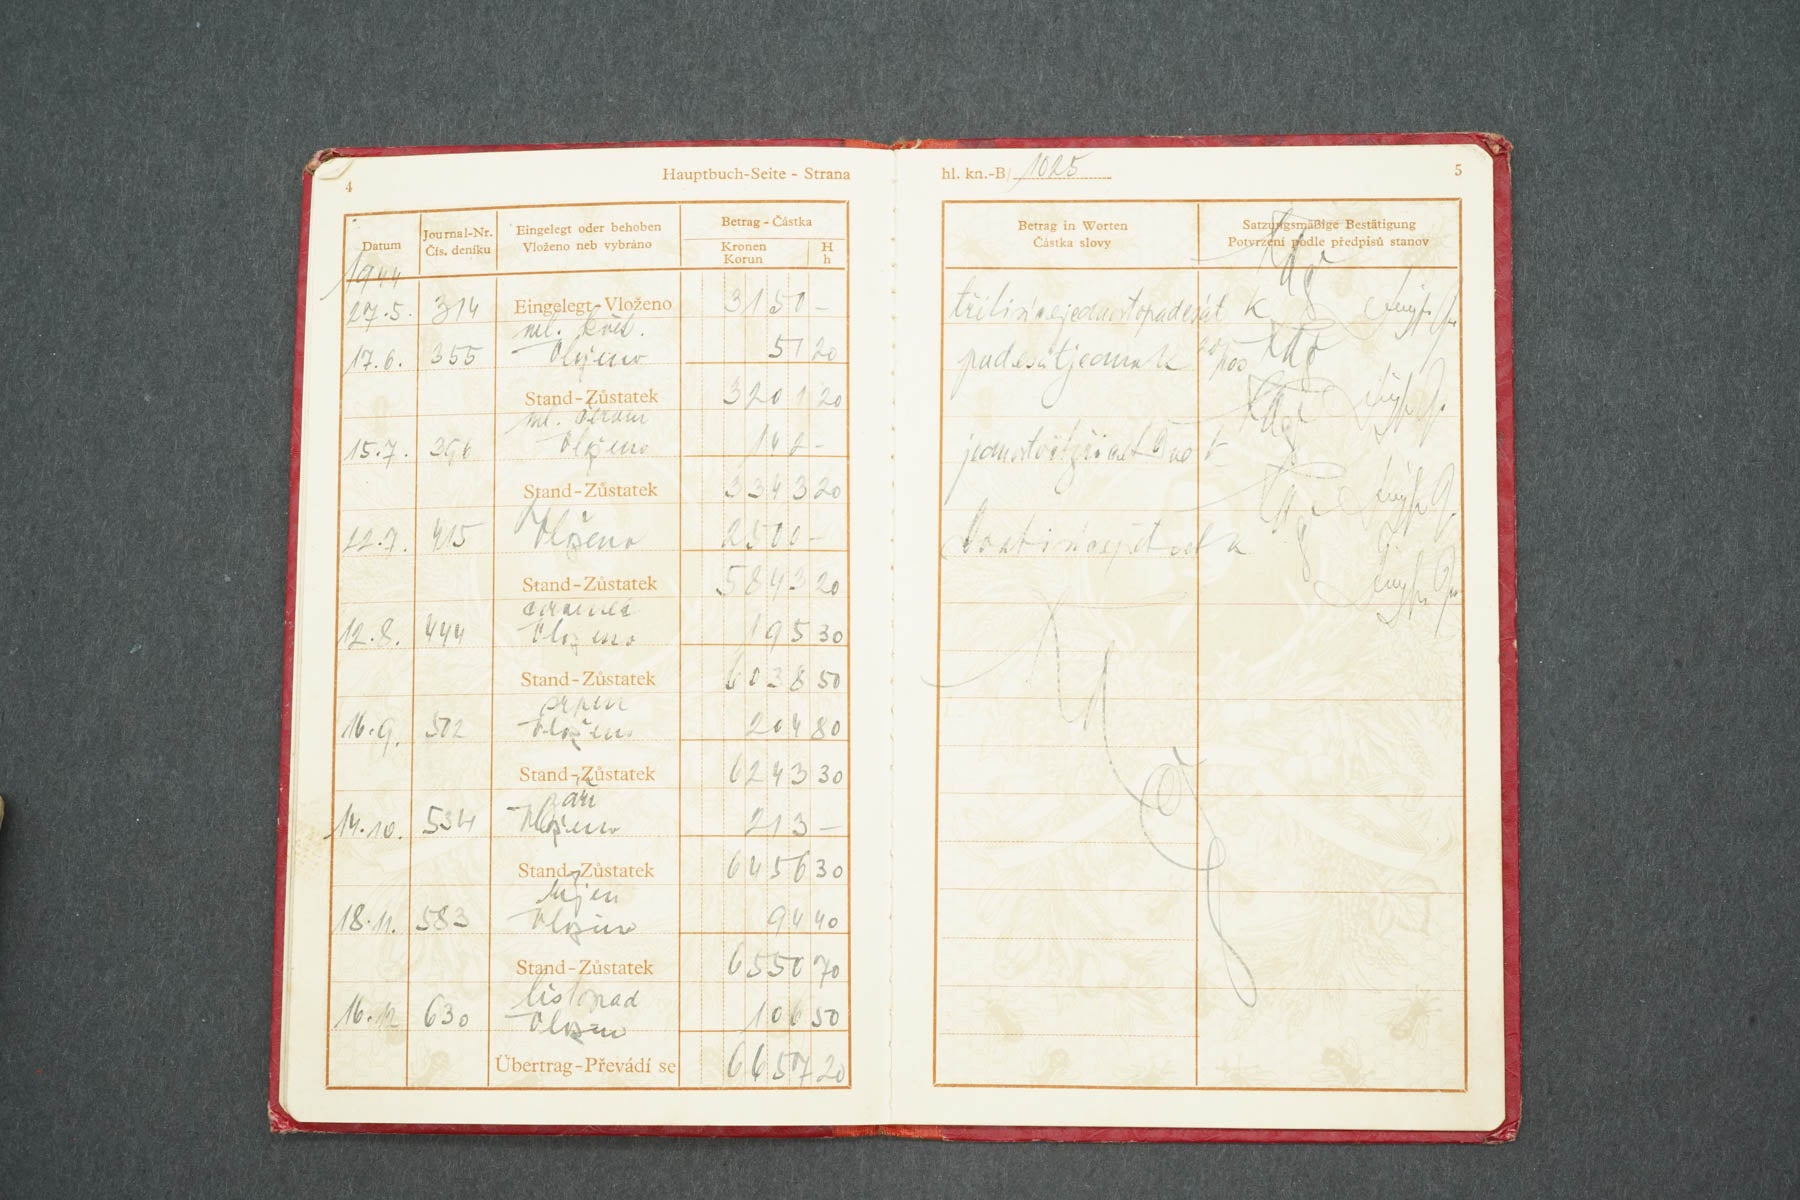 4
Hauptbuch-Seite - Strana
Datum
Journal-Nr.
Čís. deníku
Eingelegt oder behoben
Vloženo neb vybráno
Betrag - Částka
Kronen
Korun
H
h
1944
27.5. 314 Eingelegt-Vloženo 3150 –
ml. květ.
17.6. 355 Vloženo 51 20
Stand-Zůstatek 3201 20
ml. červen
15.7. 396 Vloženo 142 –
Stand-Zůstatek 3343 20
22.7. 415 Vloženo 2500 –
Stand-Zůstatek 5843 20
12.8. 444 Vloženo 195 30
Stand-Zůstatek 6038 50
srpen
16.9. 502 Vloženo 204 80
Stand-Zůstatek 6243 30
září
14.10. 534 Vloženo 213 –
Stand-Zůstatek 6456 30
říjen
18.11. 583 Vloženo 94 40
Stand-Zůstatek 6550 70
listopad
16.12 630 Vloženo 106 50
Übertrag-Převádí se 6657 20
hl. kn.-B/ 1025
5
Betrag in Worten
Částka slovy
Satzungsmäßige Bestätigung
Potvrzení podle předpisů stanov
třitisícejednostopadesát K
padesátjedna K 20/100
jednostočtyřicetdvě K
dvatisícepětset K